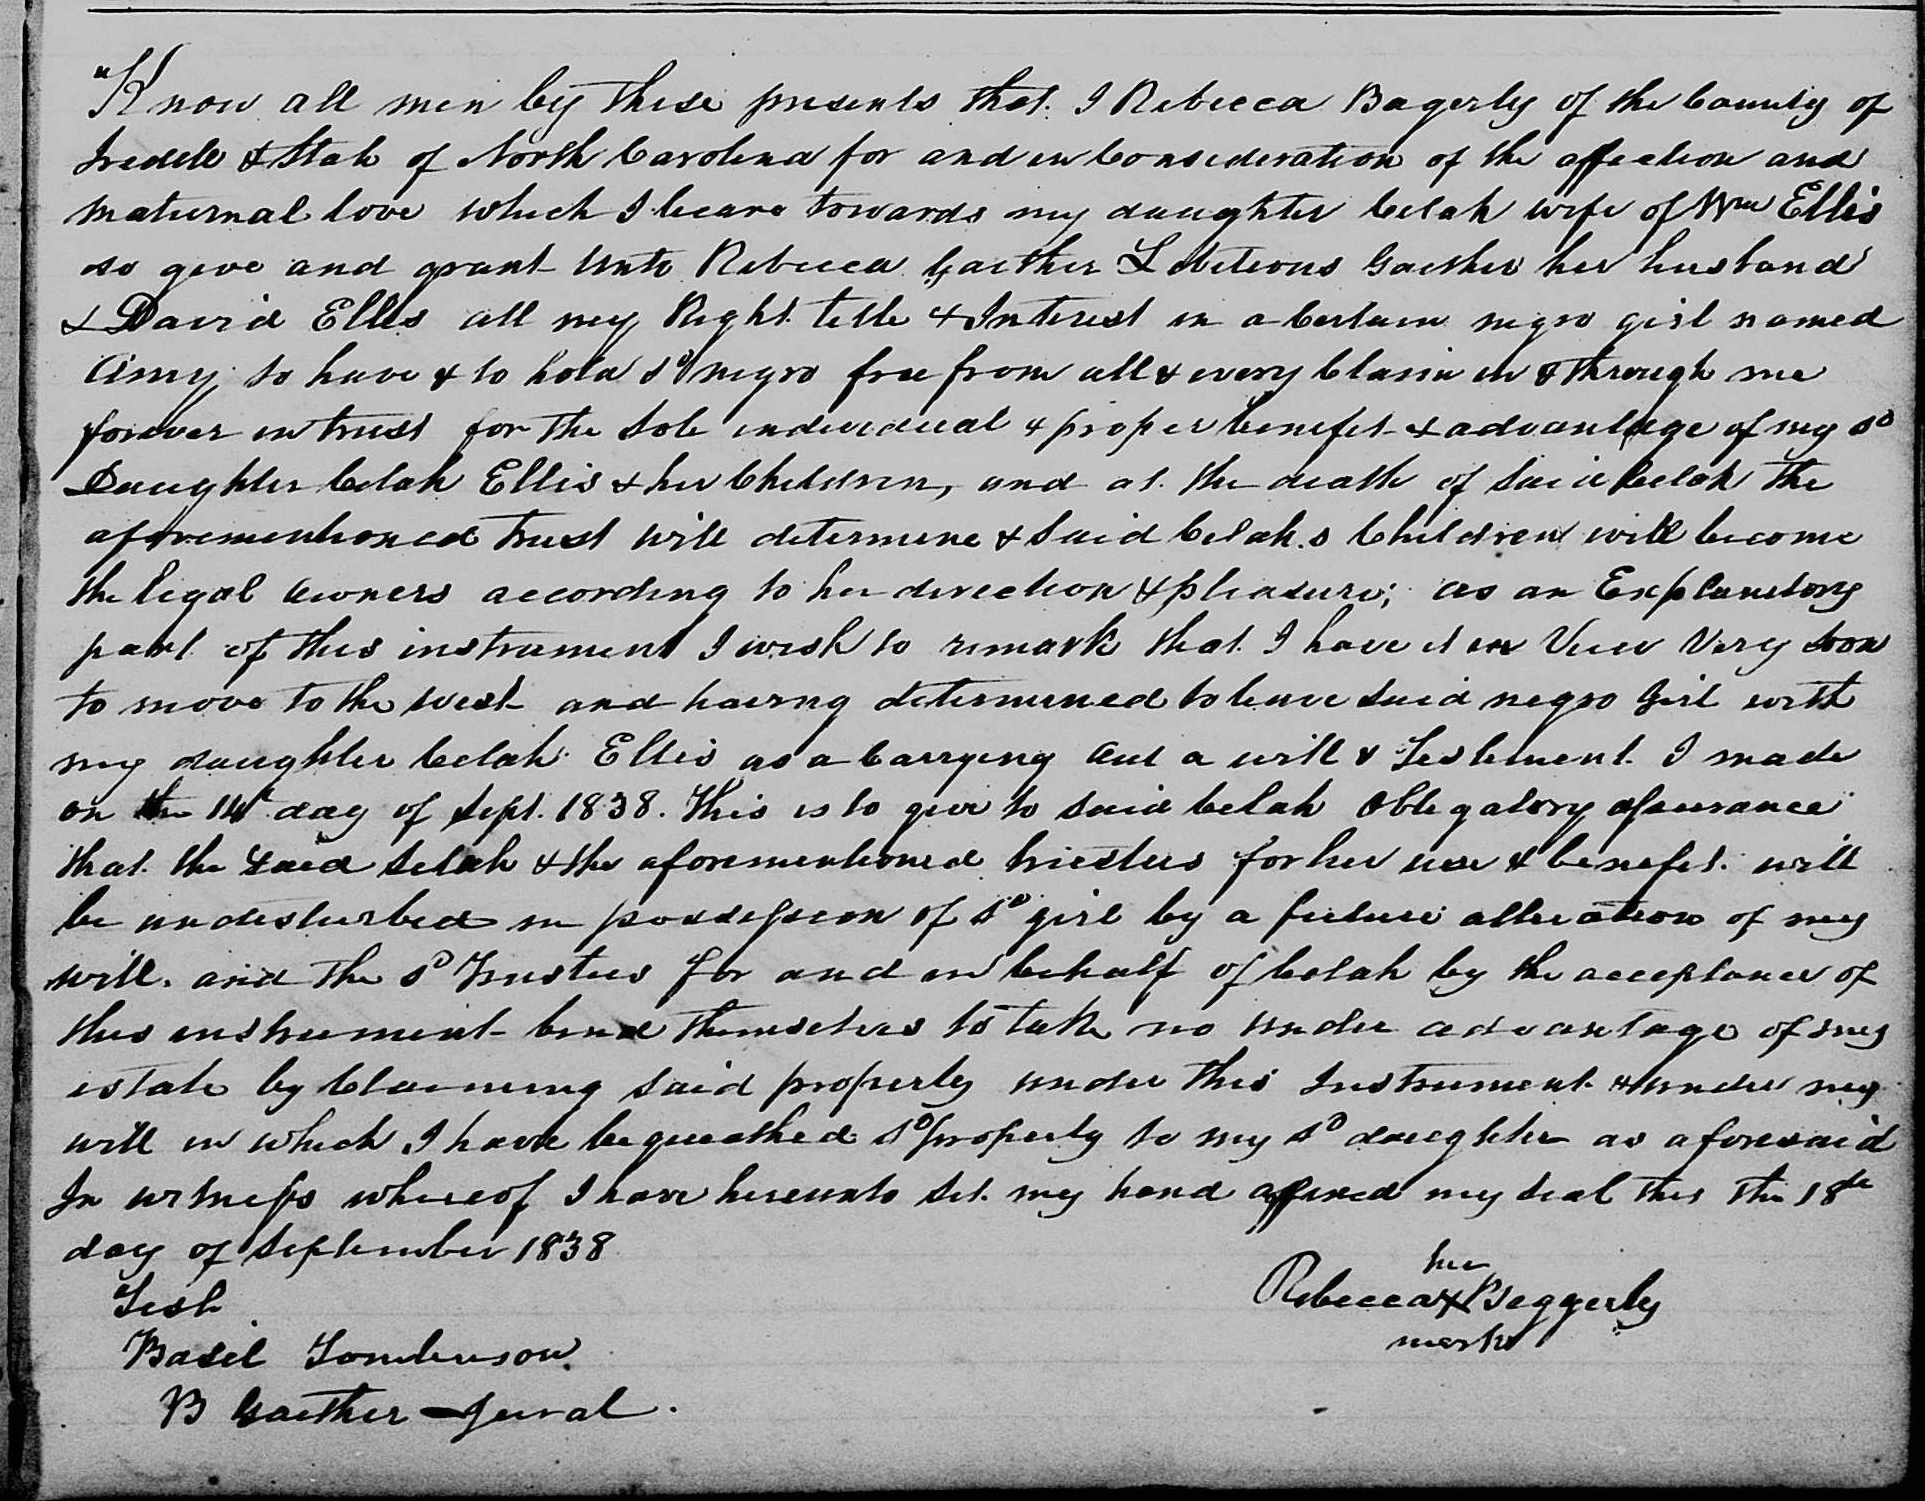 "Know all men by these presents that I Rebecca Bagerly of the County of
Iredell & State of North Carolina for and in Consideration of the affection and
maternal love which I beare towards my daughter Celah wife of Wm Ellis
do give and grant unto Rebecca Gaither Gaither her husband
& David Ellis all my Right title & Interest in a Certain negro girl named
Amy, to have & to hold sd negro free from all & every Claim in & through me
forever in trust for the Sole individual & proper benefit & advantage of my sd
Daughter Celah Ellis & her Children, and at the death of Said Celah the
aforementioned trust will determine & Said Celah.s Children will become
the legal owners according to her direction & pleasure; as an Explanitory
part of this instrument I wish to remark that I have it in View Very soon
to move to the west and haveing determined to leave Said negro Girl with
my daughter Celah Ellis as a Carrying out a will & Testement I made
on the 14th day of Sept. 1838. This is to give to Said Celah Obligatory assurance
that the Said Selah & the aforementioned trustees for her use & benefit will
be undisturbed in possession of sd girl by a future alteration of my
will. and the sd Trustees for and in behalf of Celah by the acceptance of
this instrument bind themselves to take no undue advantage of my
estate by Claiming Said property under this Instrument & under my
will in which I have bequeathed sd property to my sd daughter as aforesaid
In witness whereof I have hereunto Set my hand affixed my Seal this the 18th
day of September 1838
her
Test Rebecca X Beggerly
mark
Basil Tomlinson.
B Gaither Jurat.